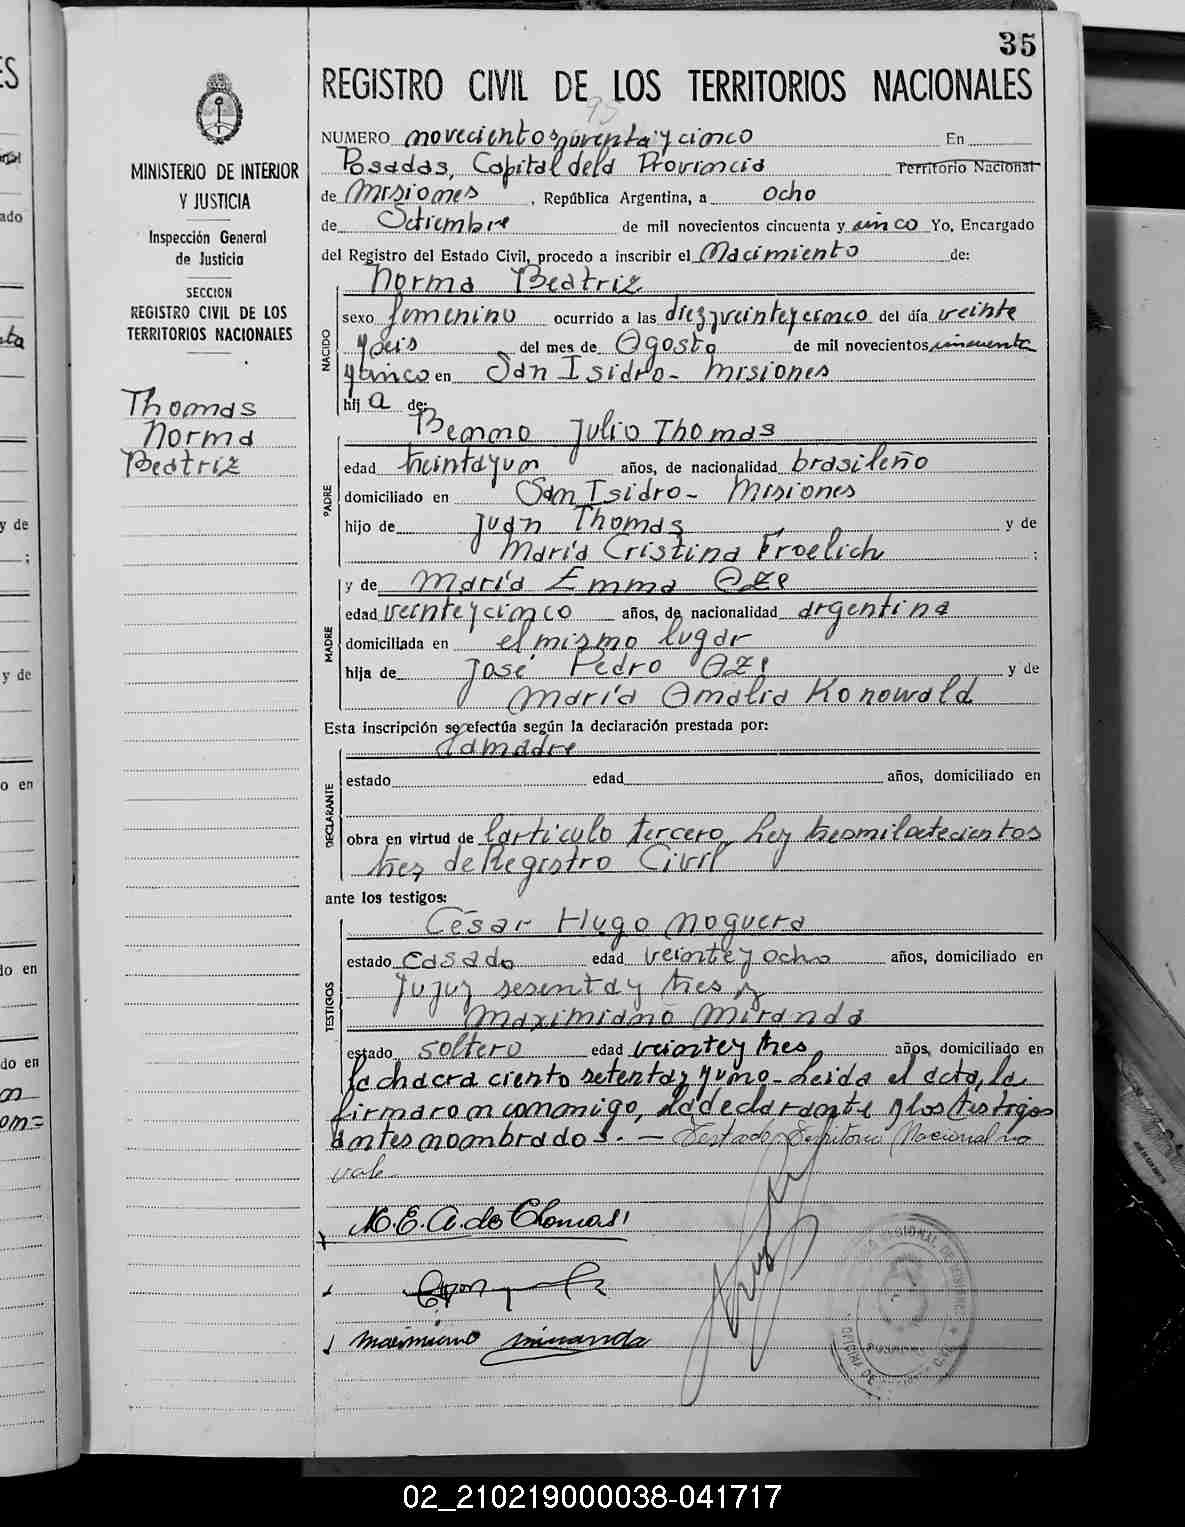 35
REGISTRO CIVIL DE LOS TERRITORIOS NACIONALES
95
NUMERO novecientos noventa y cinco En
Posadas, Capital de la Provincia Territorio Nacional
de Misiones, República Argentina, a ocho
de Setiembre de mil novecientos cincuenta y cinco Yo, Encargado
del Registro del Estado Civil, procedo a inscribir el Nacimiento de:
Norma Beatriz
NACIDO
sexo femenino ocurrido a las diez y veinte y cinco del día veinte
y seis del mes de Agosto de mil novecientos cincuenta
y cinco en San Isidro - Misiones
hij a de:
PADRE
Benno Julio Thomas
edad treinta y un años, de nacionalidad brasileño
domiciliado en San Isidro - Misiones
hijo de Juan Thomas y de
María Cristina Froelich ;
MADRE
y de María Emma
edad veinte y cinco años, de nacionalidad argentina
domiciliada en el mismo lugar
hija de José Pedro y de
María Amalia Konowald
Esta inscripción se efectúa según la declaración prestada por:
DECLARANTE
la madre
estado edad años, domiciliado en
obra en virtud de l articulo tercero Ley tresmil setecientos
tres de Registro Civil
ante los testigos:
TESTIGOS
César Hugo Noguera
estado casado edad veinte y ocho años, domiciliado en
Jujuy sesenta y tres y
Maximiano Miranda
estado soltero edad veinte y tres años, domiciliado en
la chacra ciento setenta y uno - Leida el acta, la
firmaron conmigo, la declarante y los testigos
antes nombrados. — Testado: Territorio Nacional no
vale
M.E.A. de Thomas
Maximiano Miranda
MINISTERIO DE INTERIOR
Y JUSTICIA
Inspección General
de Justicia
SECCION
REGISTRO CIVIL DE LOS
TERRITORIOS NACIONALES
Thomas
Norma
Beatriz
02_210219000038-041717